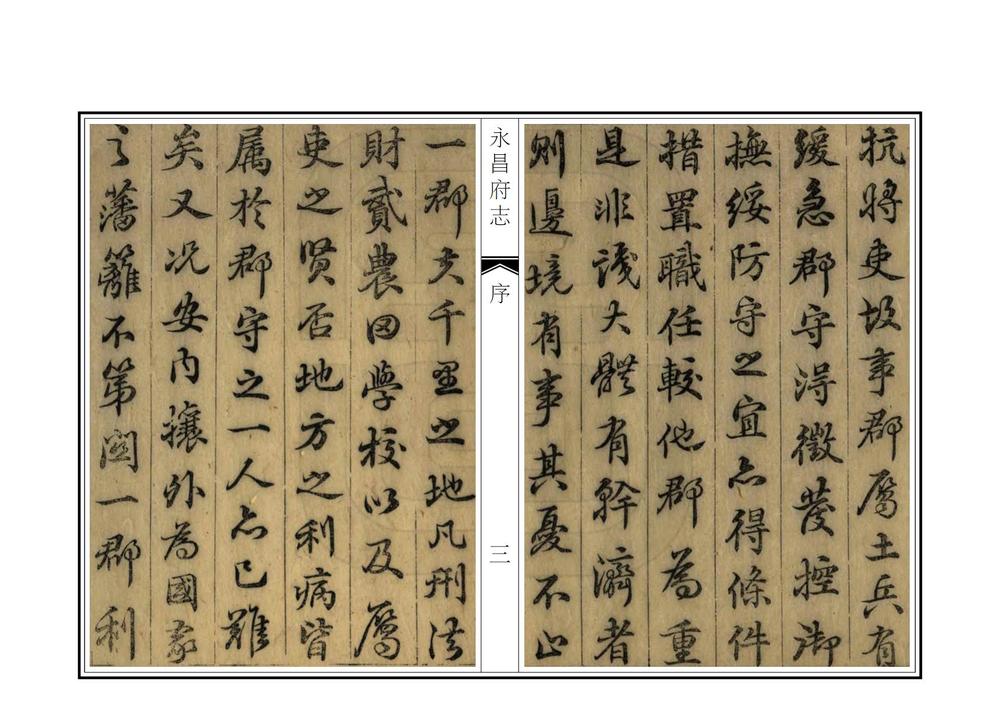 抗將吏扱事郡屬土兵有
緩急郡守得徵發控御
撫綏防守之宜亦得條件
措置職任較他郡為重
是非識大體有幹濟者
則邊境有事其憂不止
永昌府志
序
三
一郡夫千里之地凡刑法
財賦農田學校以及屬
吏之賢否地方之利病皆
屬於郡守之一人亦已難
矣又况安内攘外為國家
之藩籬不第關一郡利